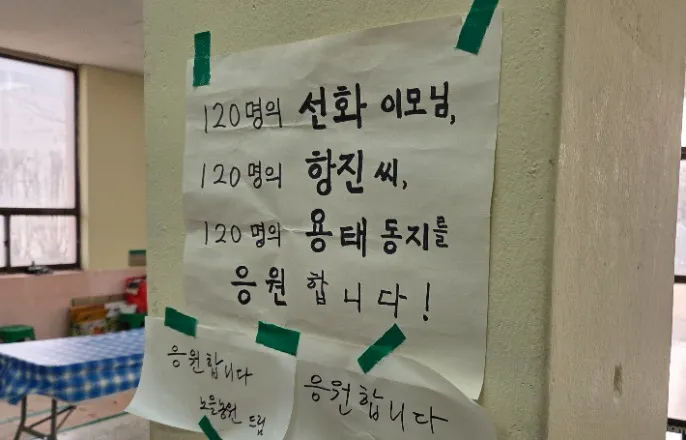 120명의 선화 이모님,
120명의 항진 씨,
120명의 용태 동지를
응원합니다!
응원합니다
노을농원 드림
응원합니다